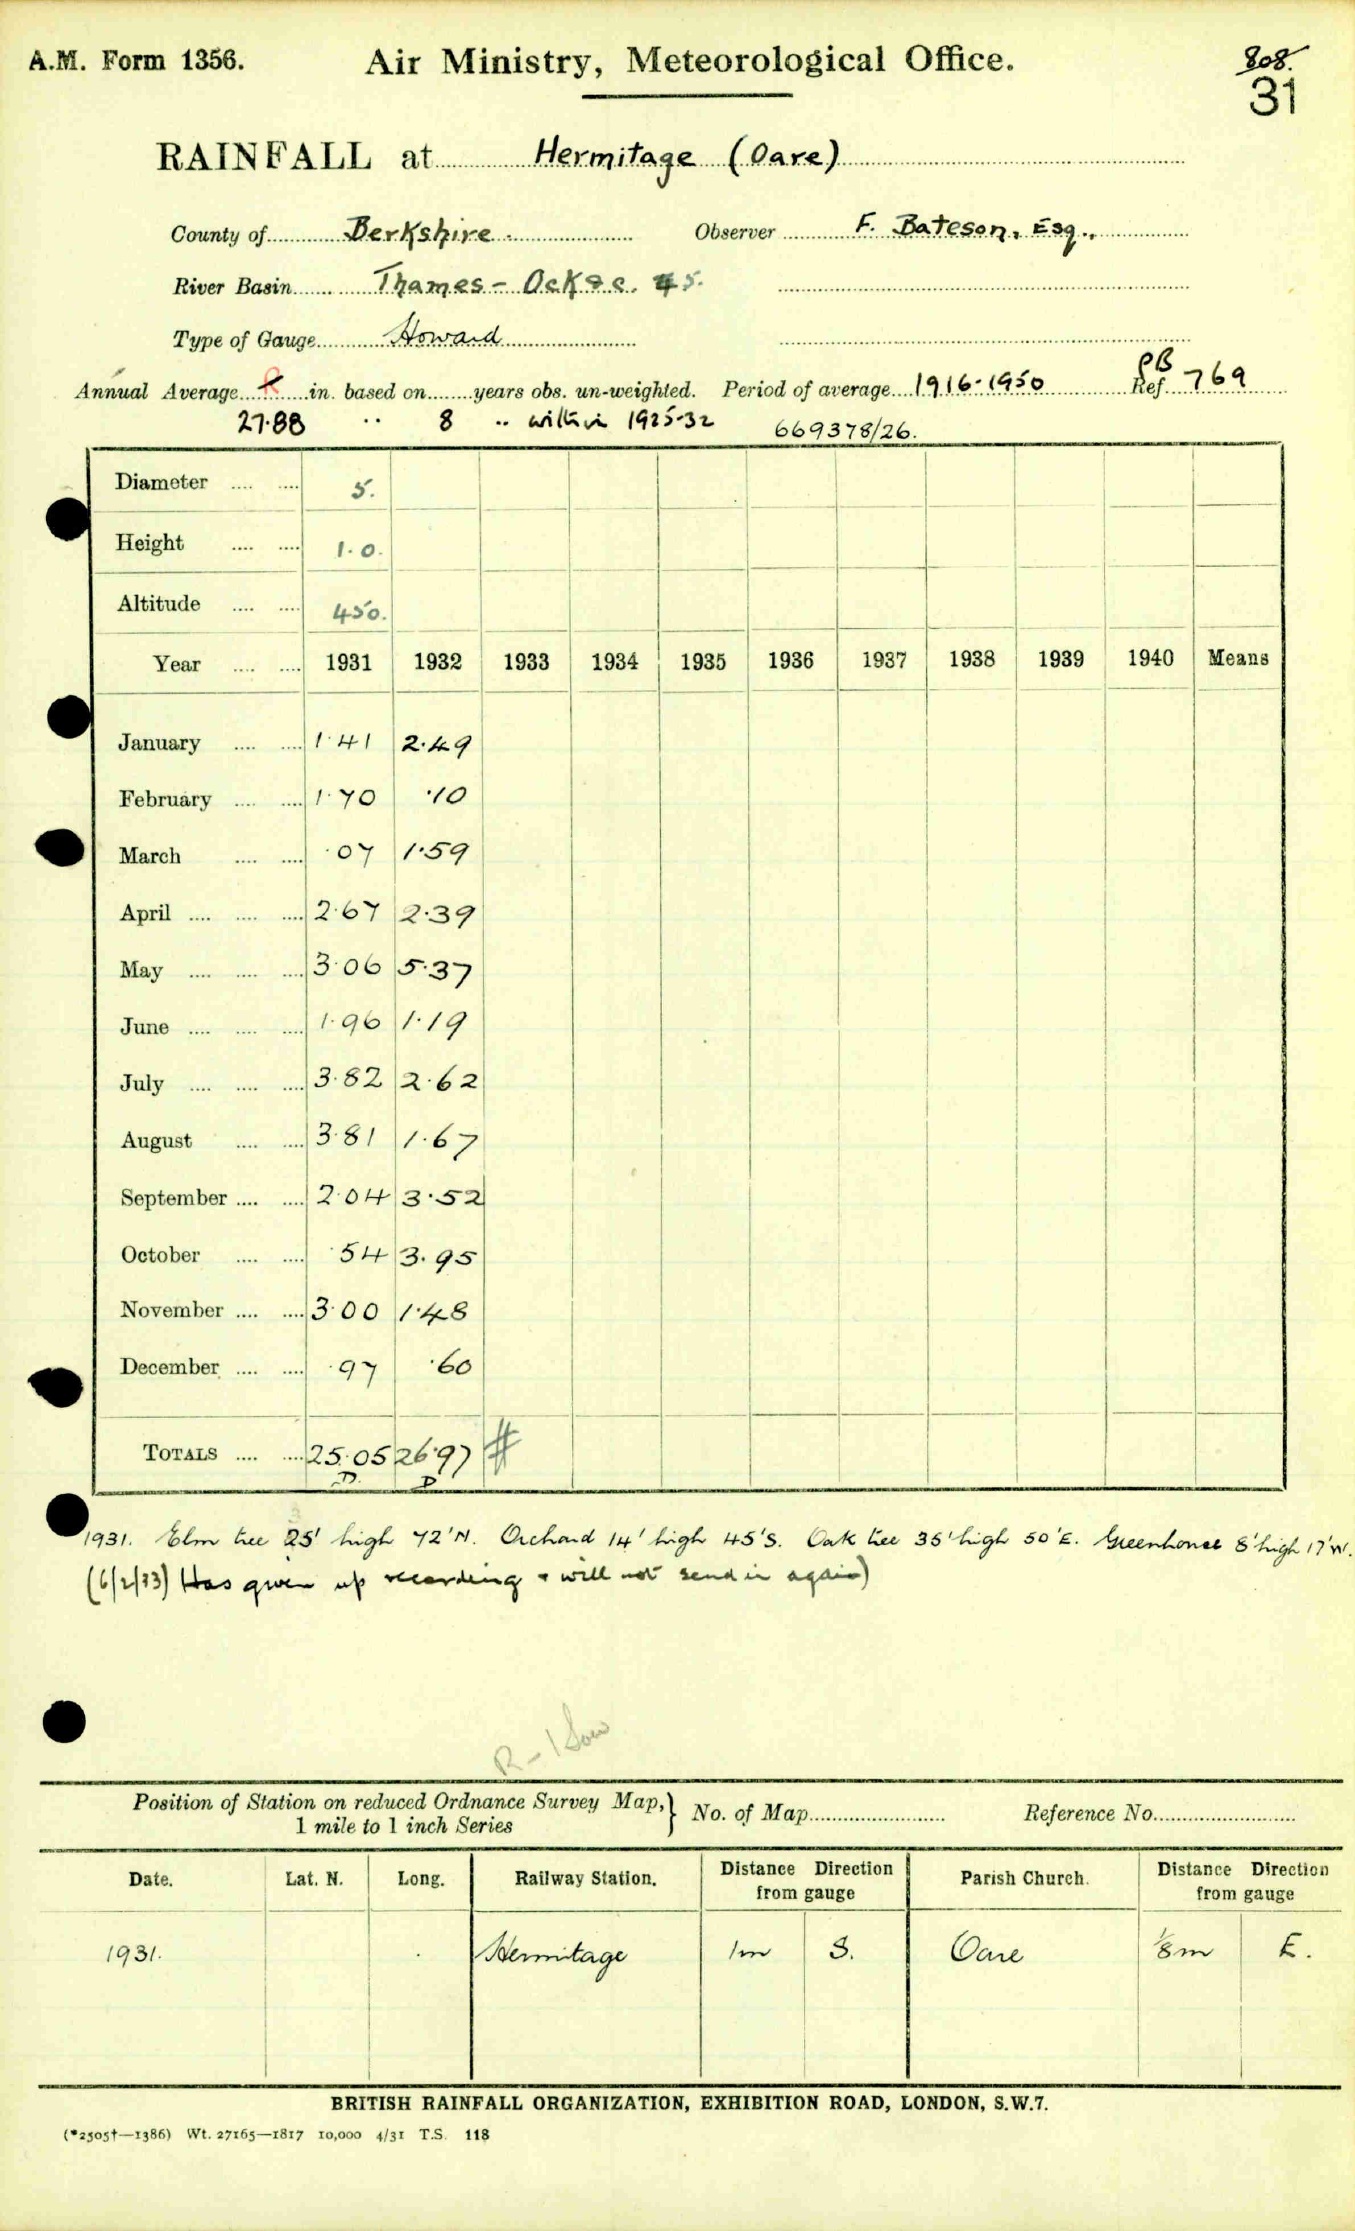 A.M. Form 1356. Air Ministry, Meteorological Office. 808.
31
RAINFALL at Hermitage (Oare)
County of Berkshire. Observer F. Bateson, Esq.,
River Basin Thames - Ock &c. 45.
Type of Gauge Howard
Annual Average in. based on years obs. un-weighted. Period of average 1916-1950 PB Ref. 769
27.88 .. 8 .. within 1925-32 669378/26.
Diameter .... .... 5.
Height .... .... 1.0.
Altitude .... .... 450.
Year .... .... 1931 1932 1933 1934 1935 1936 1937 1938 1939 1940 Means
January .... .... 1.41 2.49
February .... .... 1.70 .10
March .... .... .07 1.59
April .... .... .... 2.67 2.39
May .... .... .... 3.06 5.37
June .... .... .... 1.96 1.19
July .... .... .... 3.82 2.62
August .... .... 3.81 1.67
September .... .... 2.04 3.52
October .... .... .54 3.95
November .... .... 3.00 1.48
December .... .... .97 .60
TOTALS .... .... 25.05 26.97 #
D. D
1931. Elm tree 25' high 72'N. Orchard 14' high 45'S. Oak tree 35' high 50'E. Greenhouse 8' high 17'W.
(6/2/33) Has given up recording & will not send in again)
Position of Station on reduced Ordnance Survey Map, } No. of Map Reference No.
1 mile to 1 inch Series
Date. Lat. N. Long. Railway Station. Distance Direction from gauge Parish Church. Distance Direction from gauge
1931. Hermitage 1m S. Oare 1/8m E.
BRITISH RAINFALL ORGANIZATION, EXHIBITION ROAD, LONDON, S.W.7.
(*2505†—1386) Wt. 27165—1817 10,000 4/31 T.S. 118